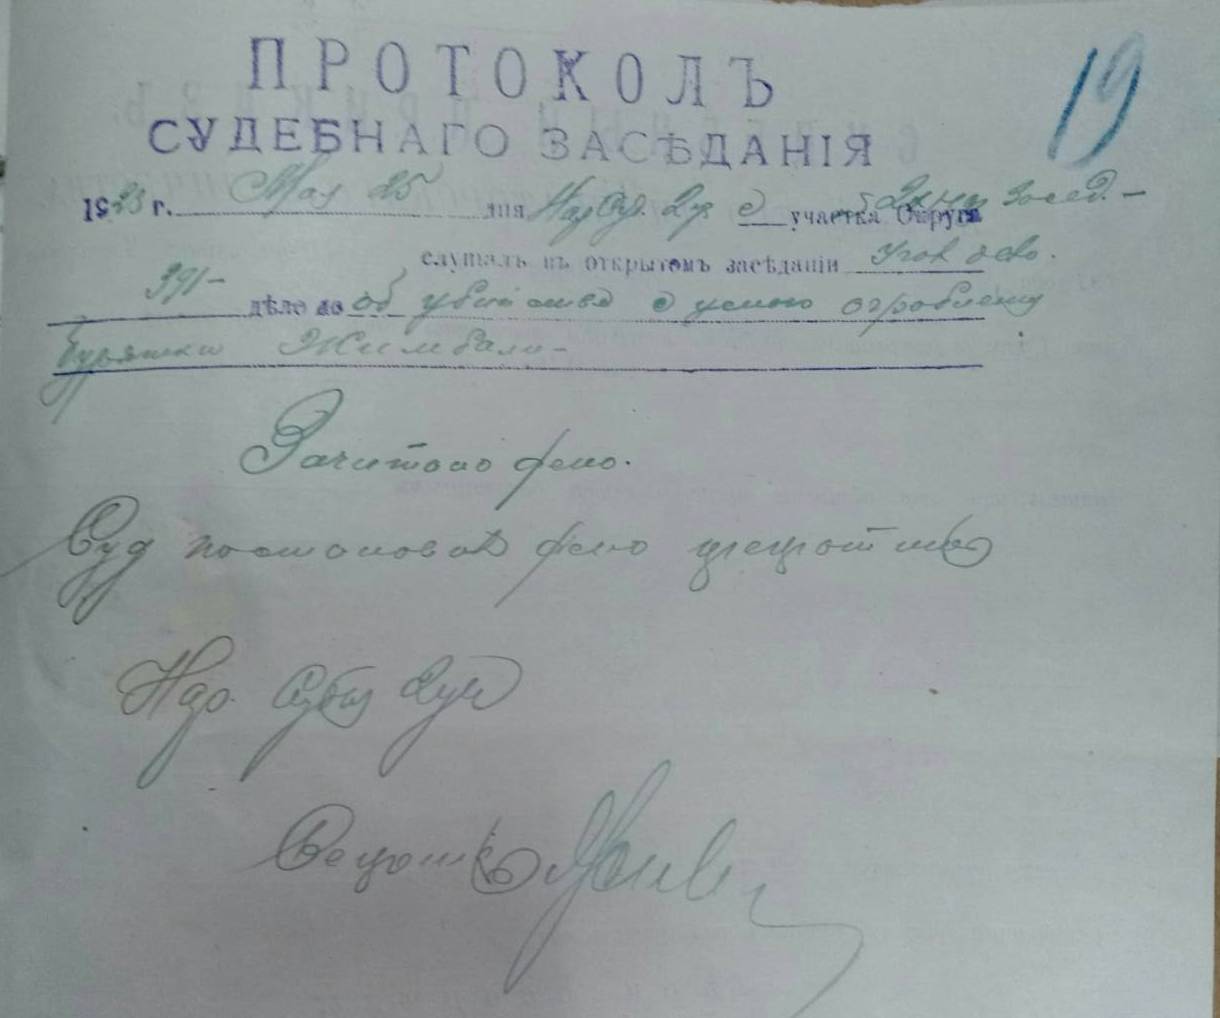 19
ПРОТОКОЛЪ
СУДЕБНАГО ЗАСѢДАНІЯ
1923 г. Мая 25 дня Нар. Суд. 2 уч участка Округа засед. —
слушалъ въ открытомъ засѣданіи Угол дело.
391 — дѣло по об убийстве с целью ограбления
бурятки Жимбали —
Зачитано дело.
Суд постановил дело прекратить
Нар. Судья 2 уч